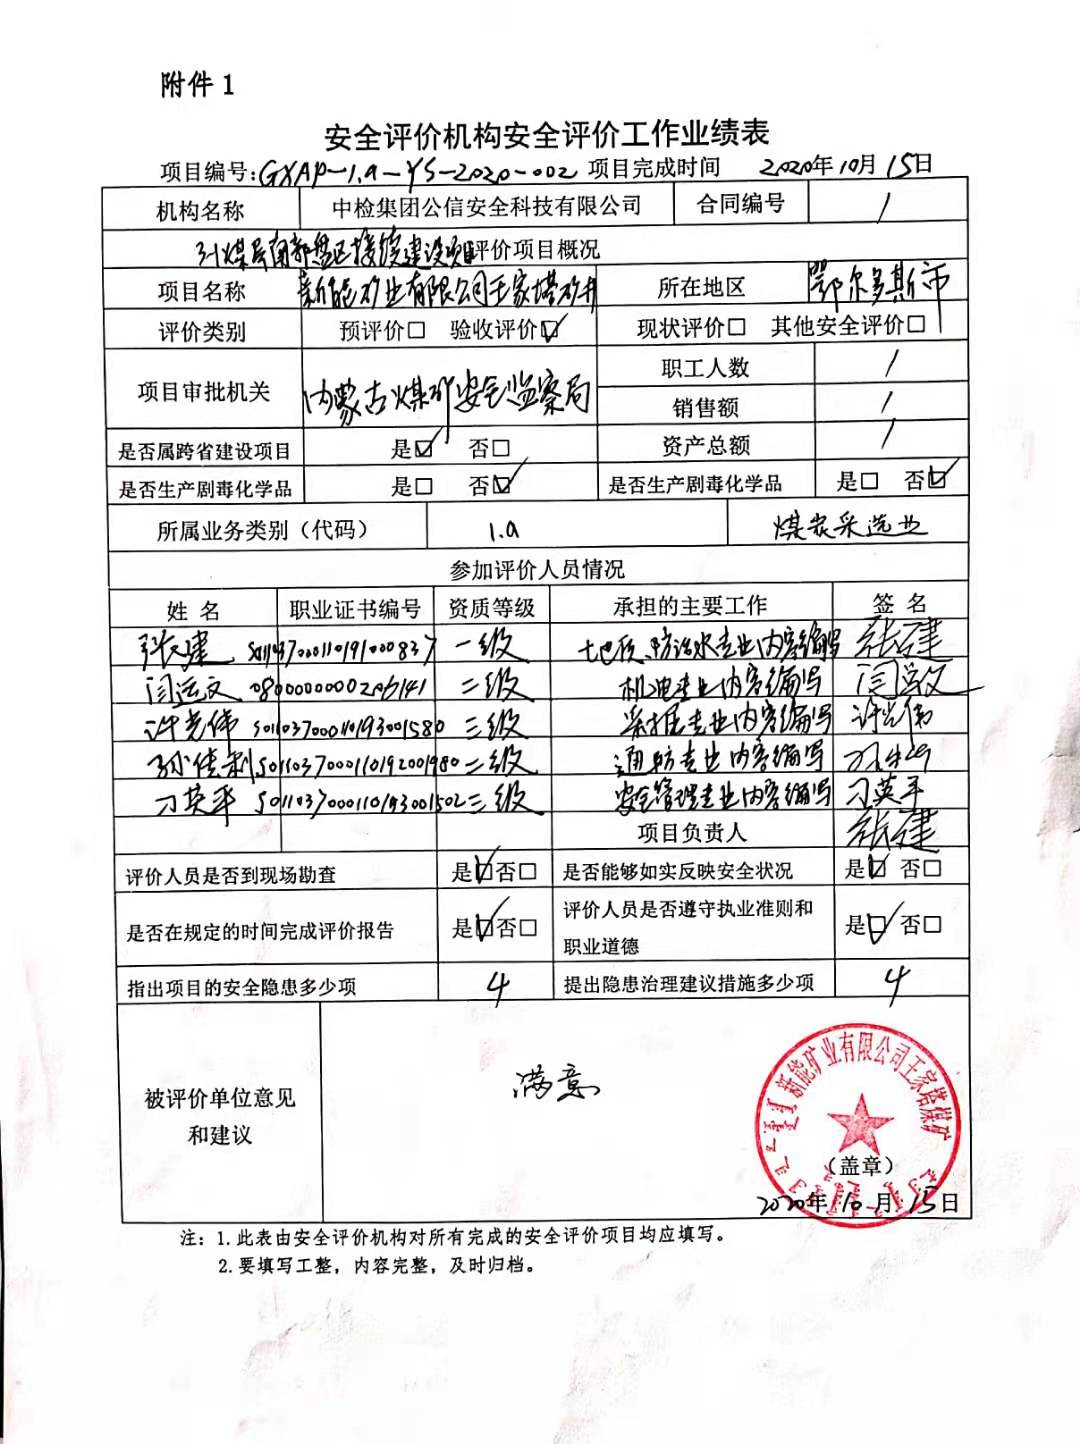 附件1
安全评价机构安全评价工作业绩表
项目编号:GXAP-1.a-YS-2020-002 项目完成时间 2020年10月15日
机构名称 中检集团公信安全科技有限公司 合同编号 /
引煤井南部盘区接续建设项目评价项目概况
项目名称 新能矿业有限公司王家塔矿井 所在地区 鄂尔多斯市
评价类别 预评价□ 验收评价☑ 现状评价□ 其他安全评价□
项目审批机关 内蒙古煤矿安全监察局 职工人数 /
销售额 /
是否属跨省建设项目 是☑ 否□ 资产总额 /
是否生产剧毒化学品 是□ 否☑ 是否生产剧毒化学品 是□ 否☑
所属业务类别（代码） 1.a 煤炭采选业
参加评价人员情况
姓 名 职业证书编号 资质等级 承担的主要工作 签 名
张建 S011037000110191000837 一级 地质、防治水专业内容编写 张建
闫运文 0800000000206141 二级 机电专业内容编写
许光伟 S011037000110193001580 三级 采掘专业内容编写 许光伟
孙佳利 S011037000110192001980 二级 通防专业内容编写
刁英平 S011037000110193001502 三级 安全管理专业内容编写 刁英平
项目负责人 张建
评价人员是否到现场勘查 是☑否□ 是否能够如实反映安全状况 是☑ 否□
是否在规定的时间完成评价报告 是☑否□ 评价人员是否遵守执业准则和
职业道德 是☑ 否□
指出项目的安全隐患多少项 4 提出隐患治理建议措施多少项 4
被评价单位意见
和建议
满意
新能矿业有限公司王家塔煤矿
（盖章）
2020年10月15日
注：1.此表由安全评价机构对所有完成的安全评价项目均应填写。
2.要填写工整，内容完整，及时归档。